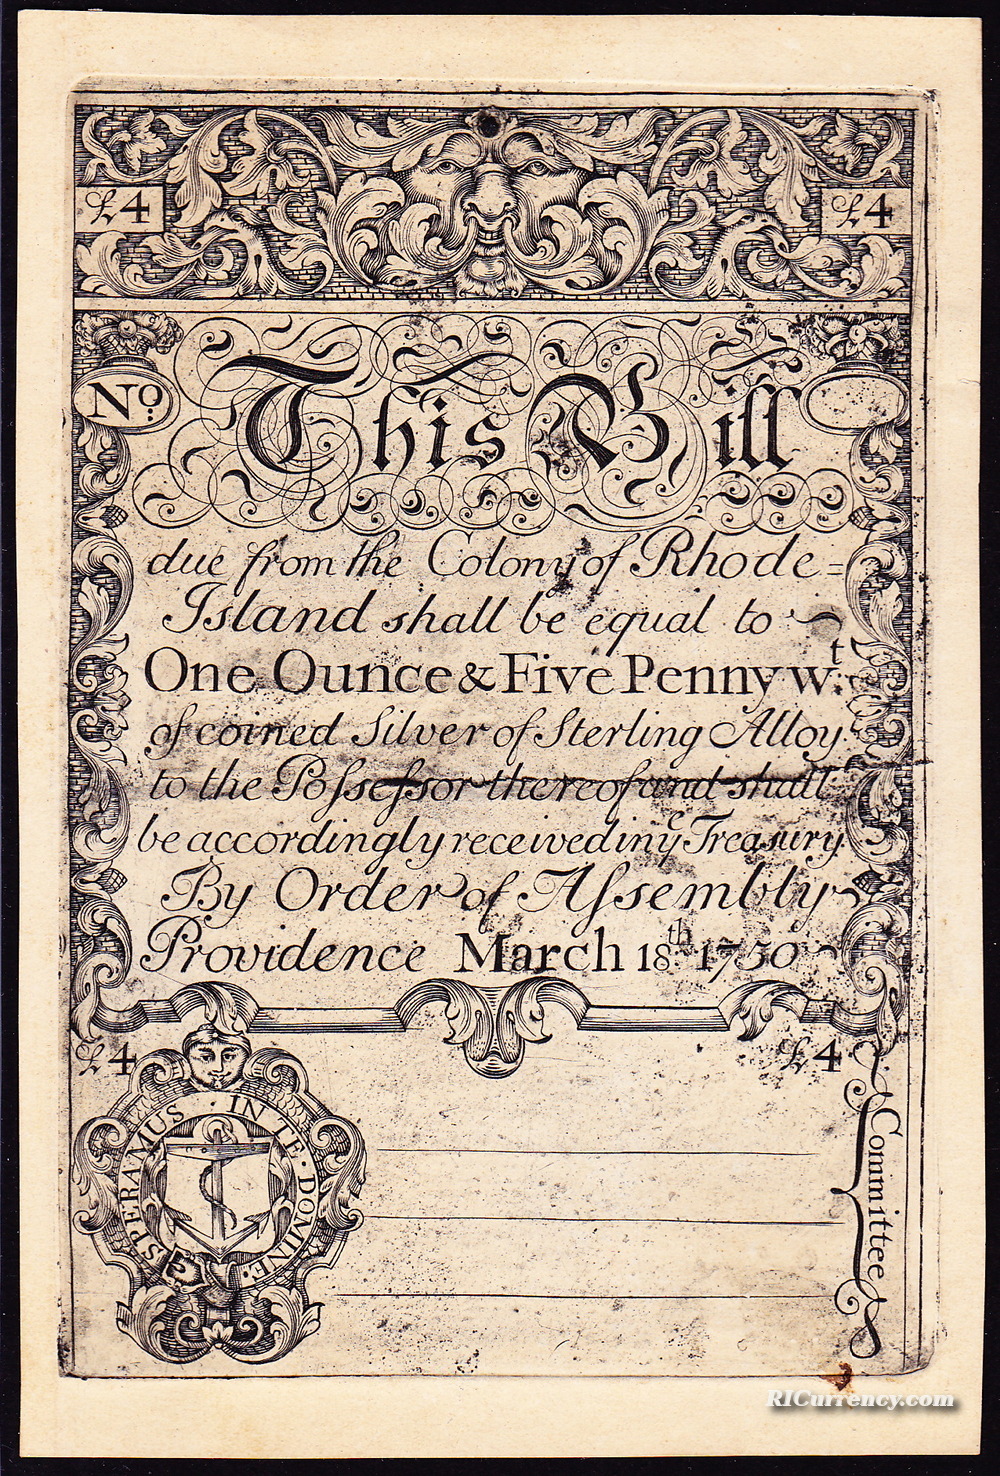 £4 £4
No.
This Bill
due from the Colony of Rhode=
Island shall be equal to
One Ounce & Five Penny wt.
of coined Silver of Sterling Alloy
to the Possessor thereof and shall
be accordingly received in ye Treasury.
By Order of Assembly
Providence March 18th. 1750
£4 £4
SPERAMUS · IN TE · DOMINE.
Committee
RICurrency.com